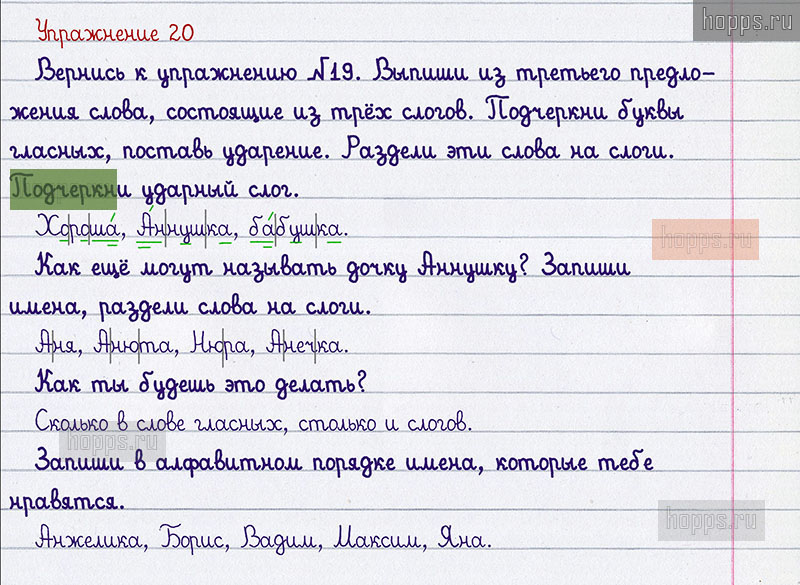 hopps.ru
Упражнение 20
Вернись к упражнению №19. Выпиши из третьего предло-
жения слова, состоящие из трёх слогов. Подчеркни буквы
гласных, поставь ударение. Раздели эти слова на слоги.
Подчеркни ударный слог.
Хо|ро|ша́, А́н|нуш|ка, ба́|буш|ка.
hopps.ru
Как ещё могут называть дочку Аннушку? Запиши
имена, раздели слова на слоги.
А|ня, А|ню|та, Ню|ра, А|неч|ка.
Как ты будешь это делать?
Сколько в слове гласных, столько и слогов.
hopps.ru
Запиши в алфавитном порядке имена, которые тебе
нравятся.
hopps.ru
Анжелика, Борис, Вадим, Максим, Яна.